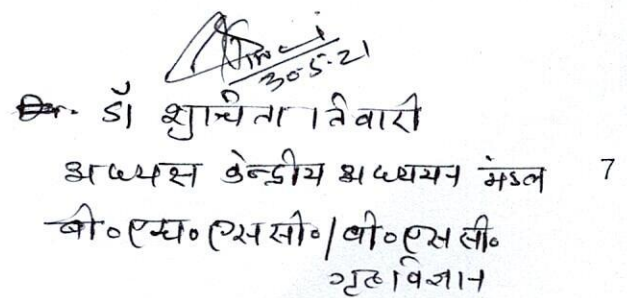 30-5-21
डॉ शुचिता तिवारी
अध्यक्ष केन्द्रीय अध्ययन मंडल 7
बी०एच०एससी०/बी०एससी०
गृहविज्ञान